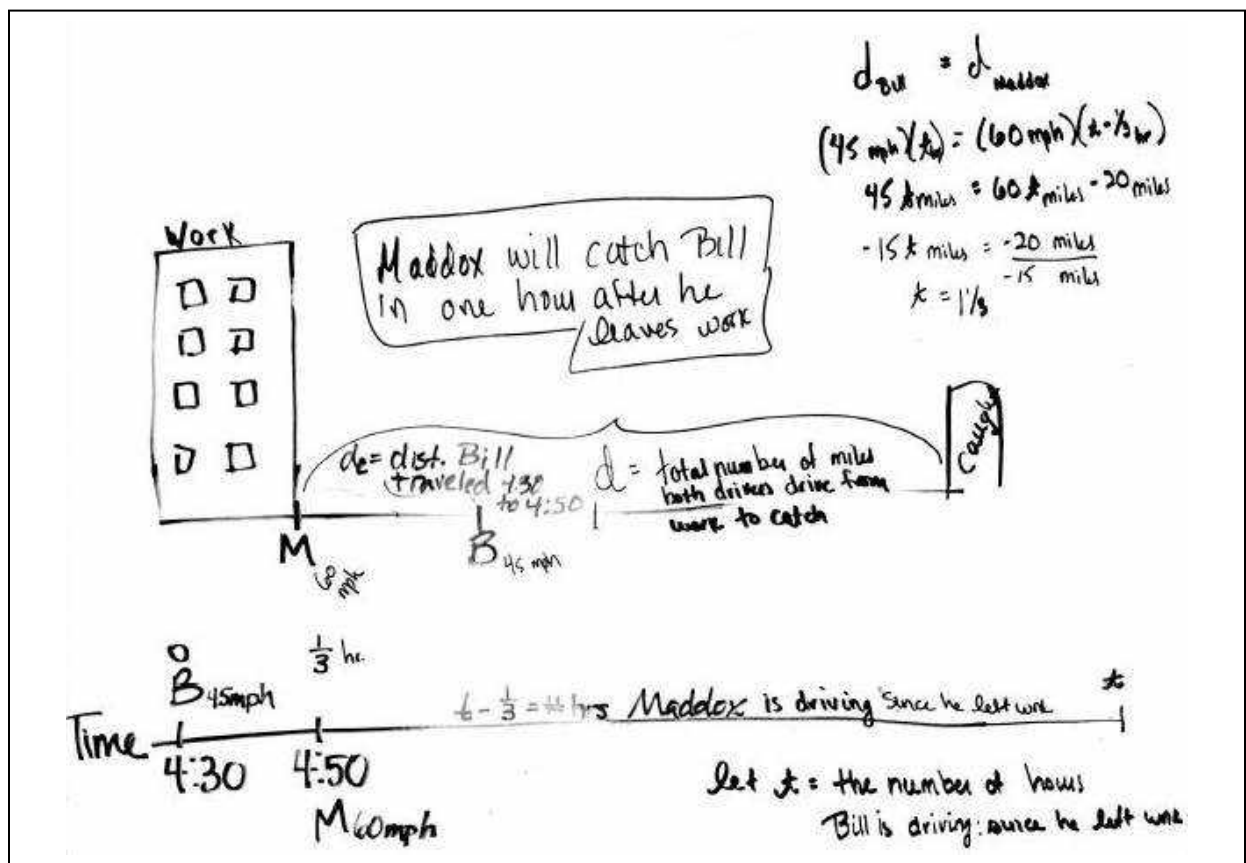 d Bill = d Maddox
(45 mph)(t hr) = (60 mph)(t - 1/3 hr)
45 t miles = 60 t miles - 20 miles
-15 t miles = -20 miles
-15 miles
t = 1 1/3
Work
Maddox will catch Bill
in one hour after he
leaves work
caught
= dist. Bill
traveled 4:30
to 4:50
d = total number of miles
both drivers drive from
work to catch
M 60 mph
B 45 mph
0
1/3 hr.
B 45mph
t - 1/3 = hrs Maddox is driving since he left work
t
Time
4:30 4:50
M 60mph
let t = the number of hours
Bill is driving since he left work